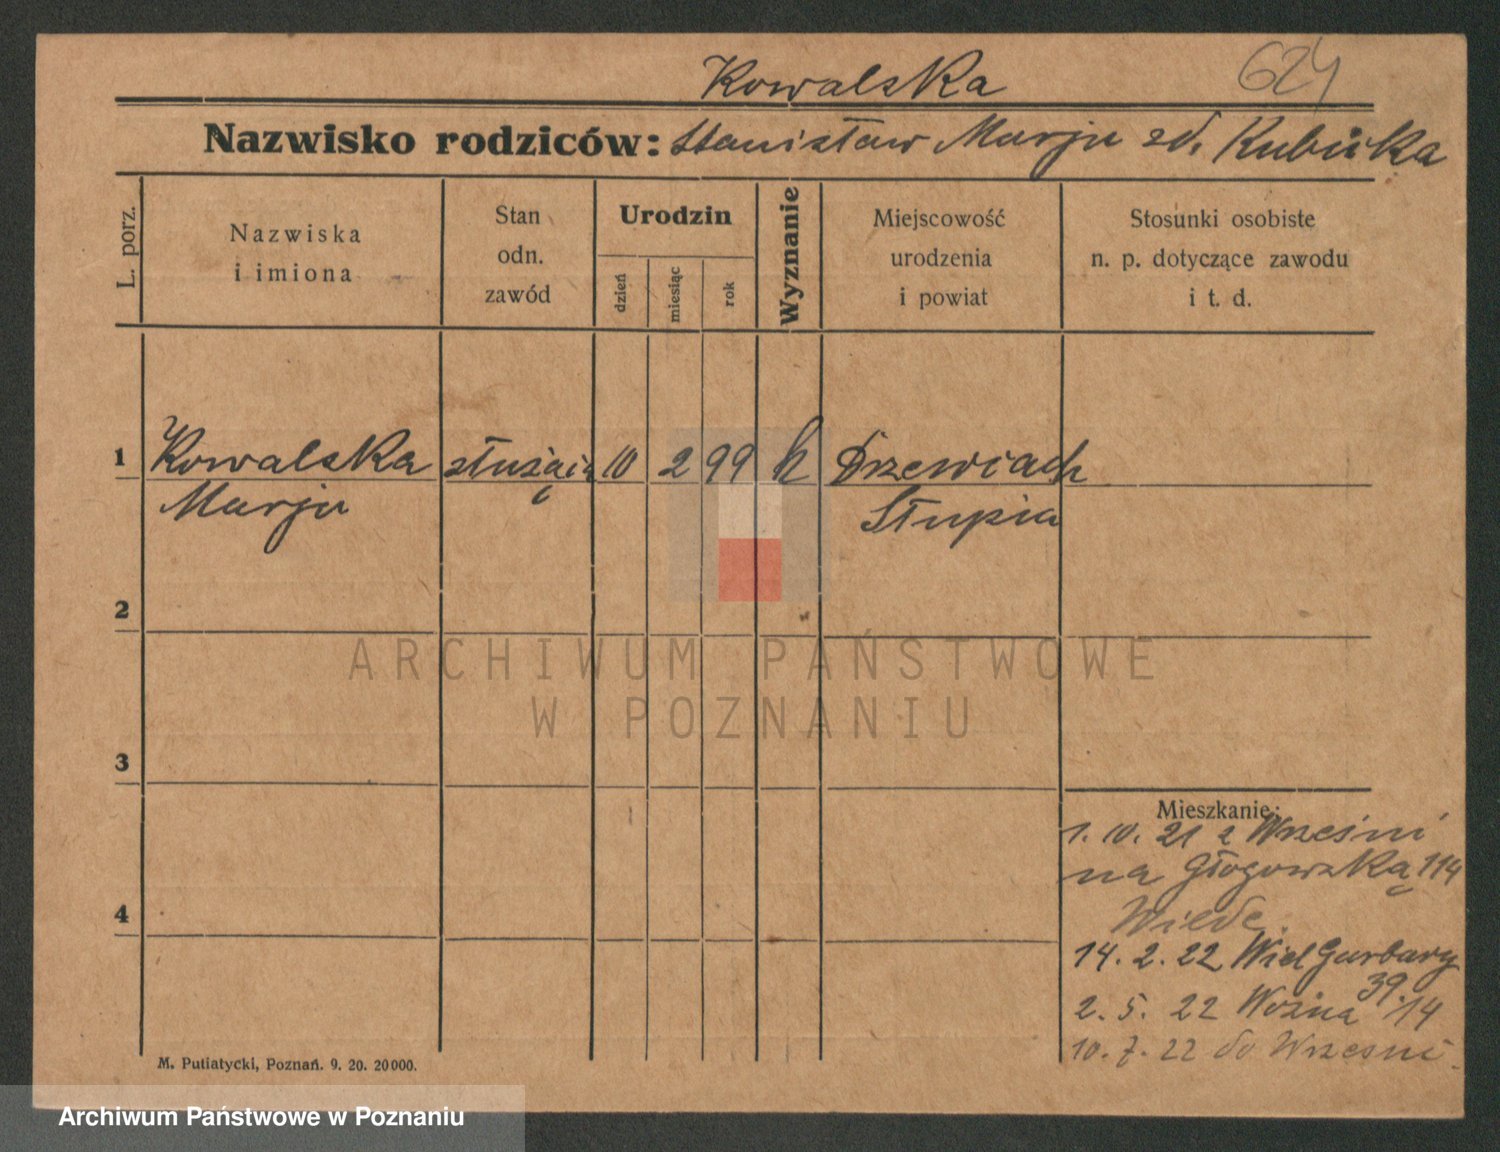 Kowalska 624
Nazwisko rodziców: Stanisław Marja zd. Kubicka
L. porz.
Nazwiska
i imiona
Stan
odn.
zawód
Urodzin
dzień
miesiąc
rok
Wyznanie
Miejscowość
urodzenia
i powiat
Stosunki osobiste
n. p. dotyczące zawodu
i t. d.
1 Kowalska służąca 10 2 99 k
Marja Słupia
2
ARCHIWUM PAŃSTWOWE
W POZNANIU
3
Mieszkanie:
1. 10. 21 z Wrześni
na Głogowską 114
4
14. 2. 22 Wiel Garbary
39.
2. 5. 22 Woźna 14
10. 7. 22 do Wrześni
M. Putiatycki, Poznań. 9. 20. 20000.
Archiwum Państwowe w Poznaniu